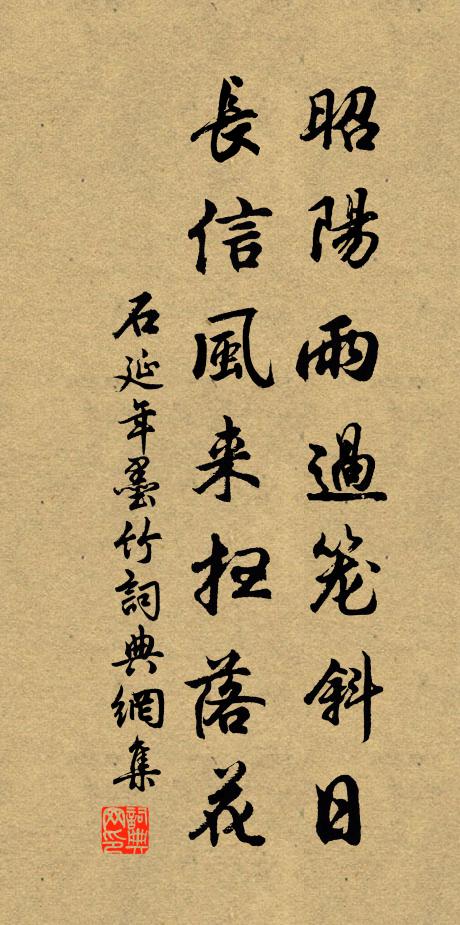 昭陽雨過笼斜日
長信風来扫落花
石延年墨竹詞典網集
詞典
网印